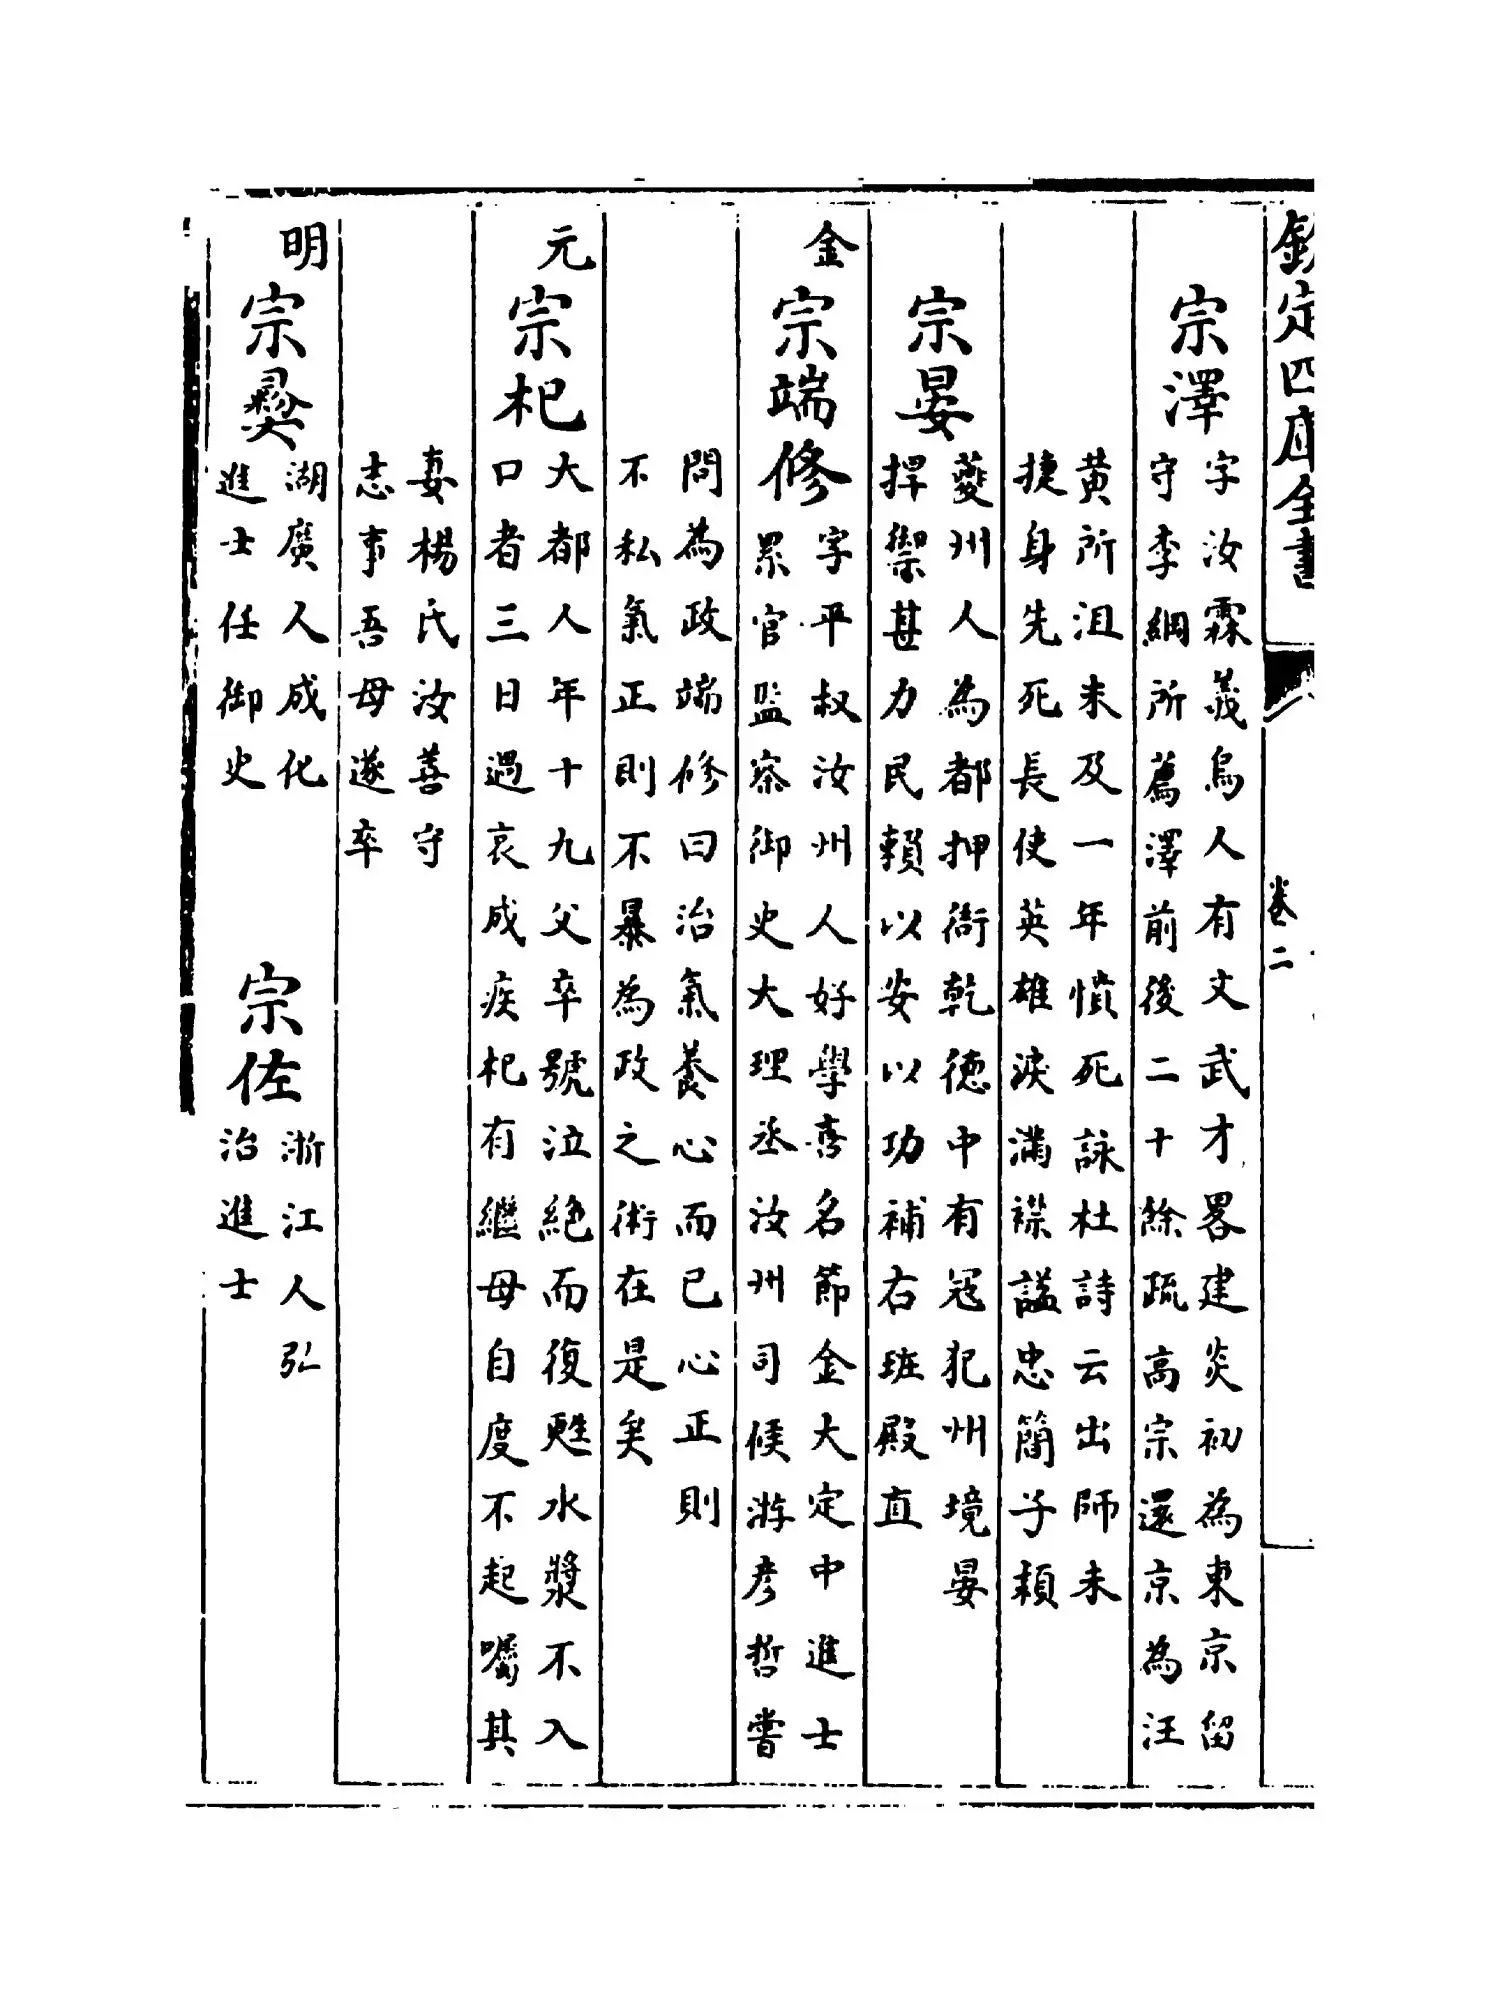 欽定四庫全書
卷二
宗澤
字汝霖義烏人有文武才畧建炎初為東京留
守李綱所薦澤前後二十餘疏高宗還京為汪
黄所沮未及一年憤死詠杜詩云出師未
捷身先死長使英雄淚滿襟諡忠簡子頴
宗晏
夔州人為都押衙乾德中有冦犯州境晏
捍禦甚力民賴以安以功補右班殿直
金
宗端修
字平叔汝州人好學喜名節金大定中進士
累官監察御史大理丞汝州司候游彦哲嘗
問為政端修曰治氣養心而已心正則
不私氣正則不暴為政之術在是矣
元
宗杞
大都人年十九父卒號泣絶而復甦水漿不入
口者三日遇哀成疾杞有繼母自度不起囑其
妻楊氏汝善守
志事吾母遂卒
明
宗彛
湖廣人成化
進士任御史
宗佐
浙江人弘
治進士